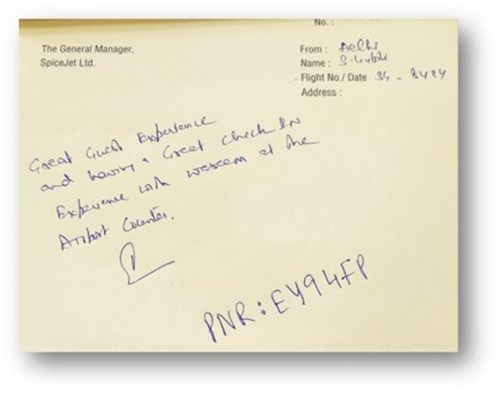 No.:
The General Manager,
SpiceJet Ltd.
From: Delhi
Name:
Flight No./Date SG - 8484
Address:
Great Guest Experience
and having a Great check IN
Experience with waseem at the
Airport Counter.
PNR: EY94FP